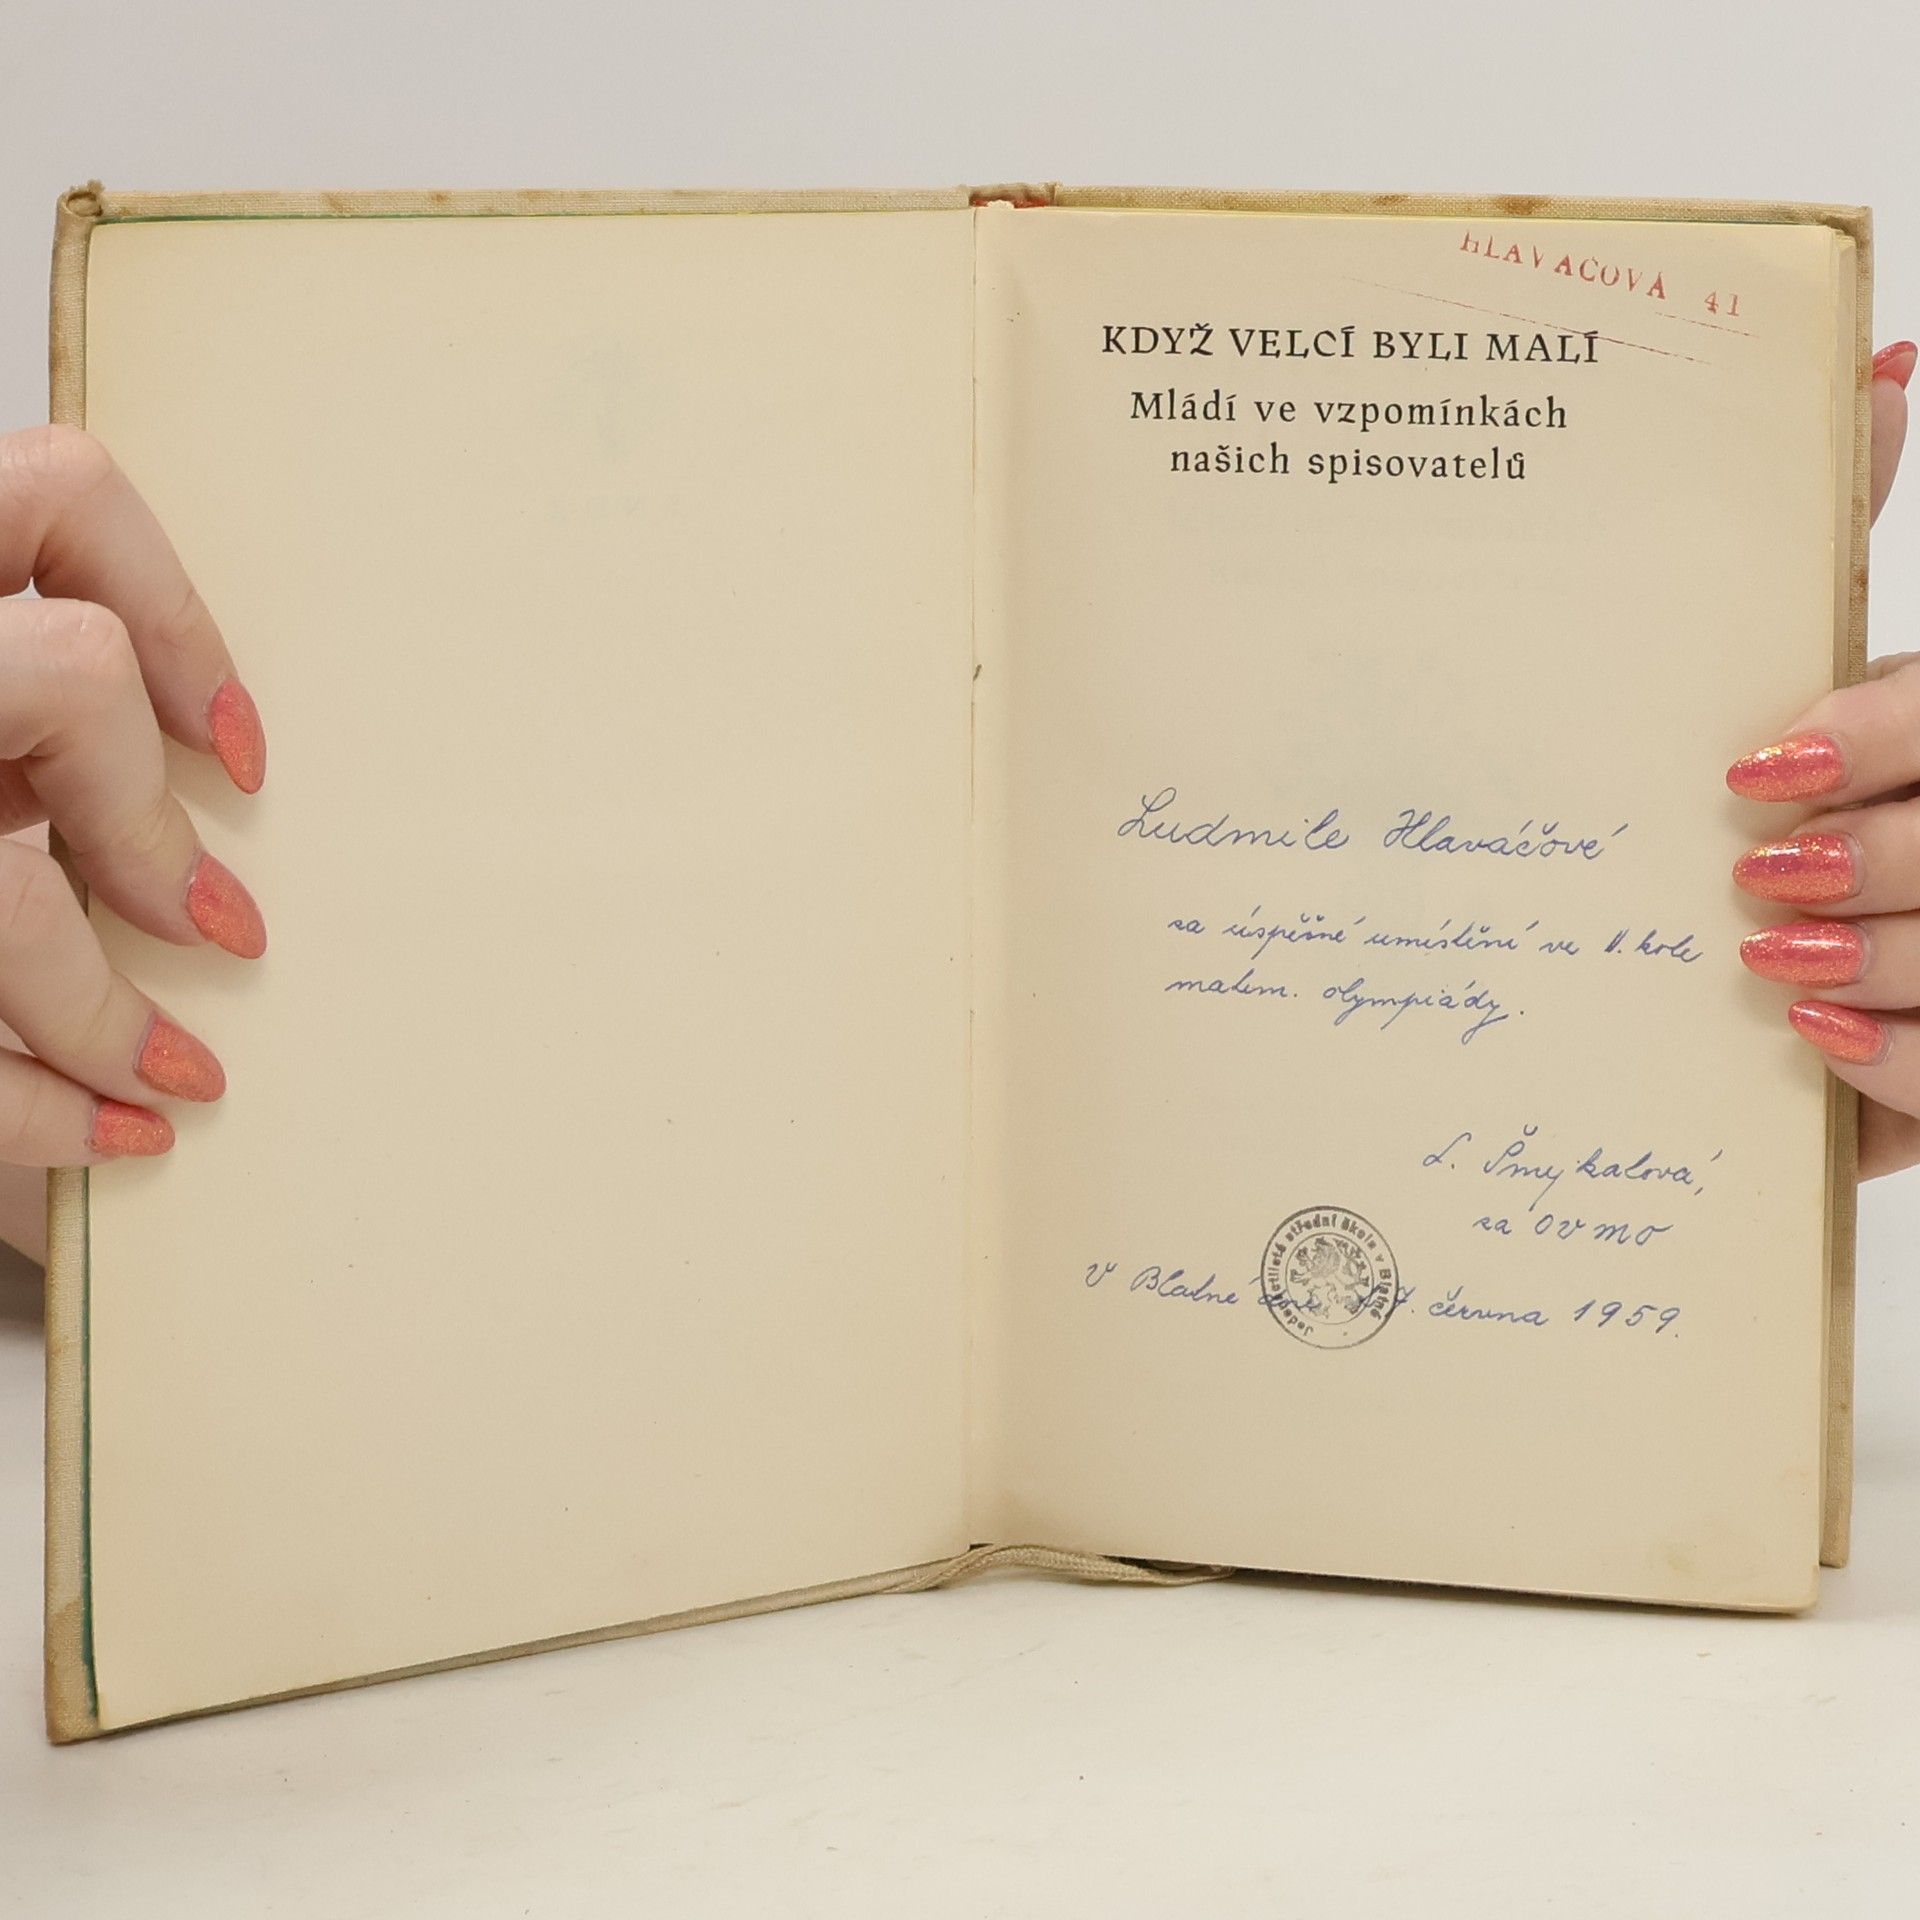 HLAVÁČOVÁ 41
KDYŽ VELCÍ BYLI MALÍ
Mládí ve vzpomínkách
našich spisovatelů
Ludmile Hlaváčové
za úspěšné umístění ve II. kole
matem. olympiády.
L. Šmejkalová,
za OVMO
Jedenáctiletá střední škola v Blatné
V Blatné dne 7. června 1959.